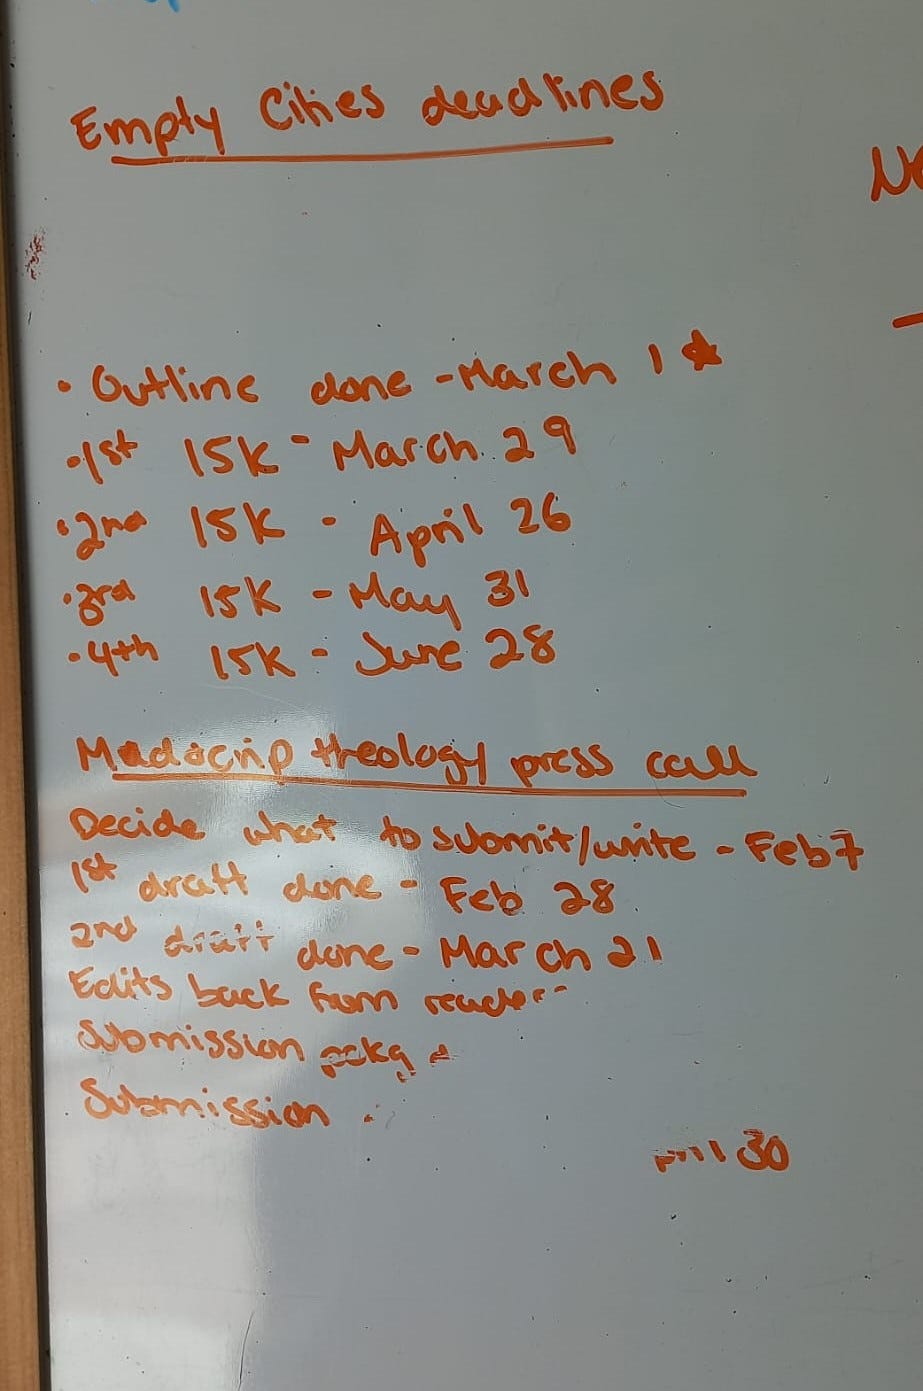 Empty Cities deadlines
• Outline done - March 1 ★
• 1st 15K - March 29
• 2nd 15K - April 26
• 3rd 15K - May 31
• 4th 15K - June 28
theology press call
Decide what to submit/write - Feb 7
1st draft done - Feb 28
2nd draft done - March 21
Edits back from
Submission pckg
Submission
30